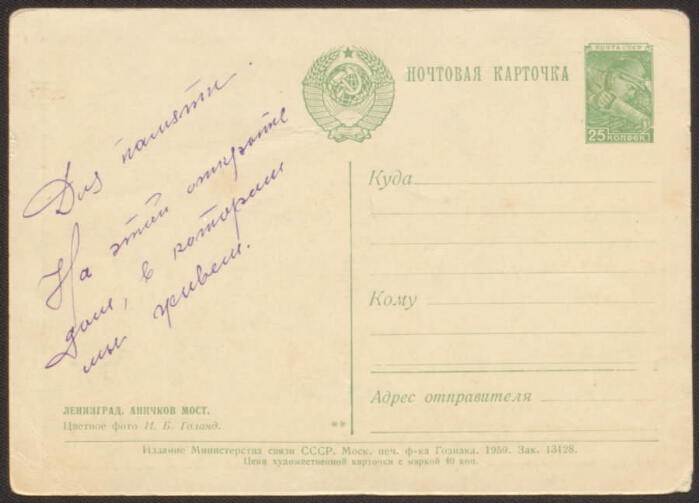 Для памяти.
На этой открытке
дом, в котором
мы живем.
ПОЧТОВАЯ КАРТОЧКА
ПОЧТА СССР
25 КОПЕЕК
Куда
Кому
Адрес отправителя
ЛЕНИНГРАД. АНИЧКОВ МОСТ.
Цветное фото И. Б. Голанд.
**
Издание Министерства связи СССР. Моск. печ. ф-ка Гознака. 1959. Зак. 13128.
Цена художественной карточки с маркой 40 коп.